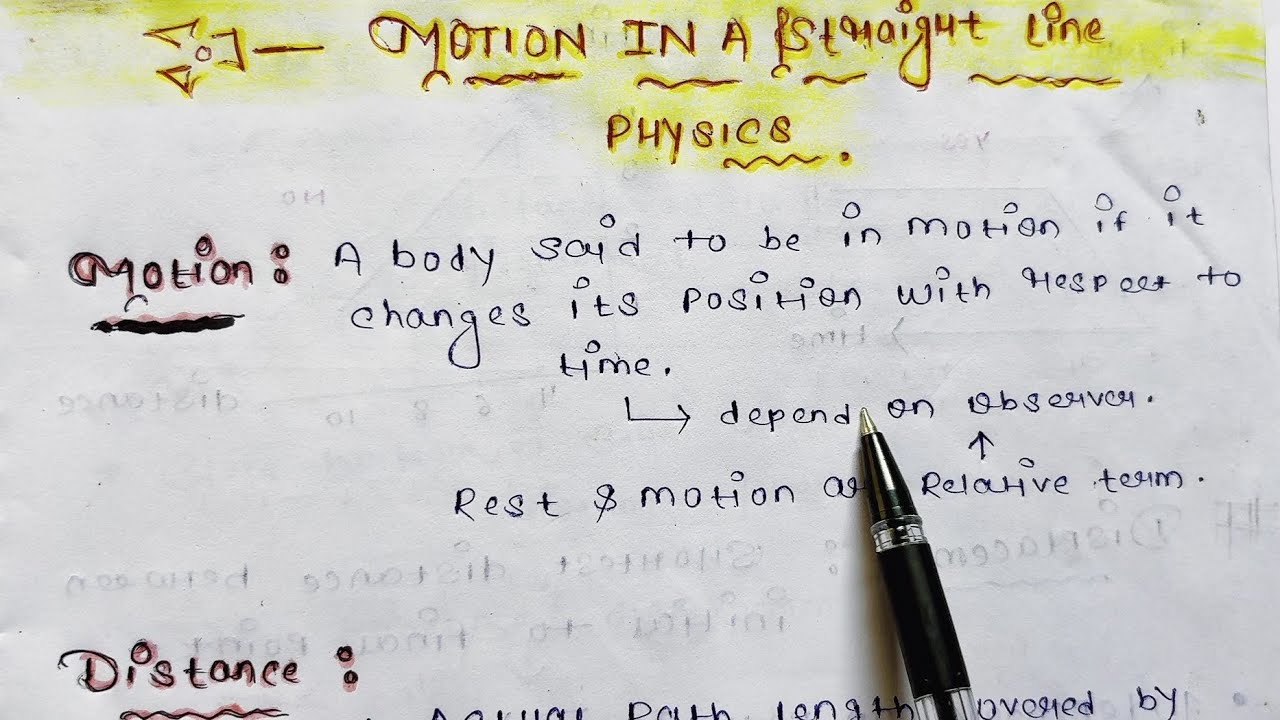 MOTION IN A Straight Line
PHYSICS.
Motion: A body said to be in motion if it
changes its position with respect to
time.
↳ depend on observer.
↑
Rest & motion are Relative term.
Distance:
Actual Path length covered by